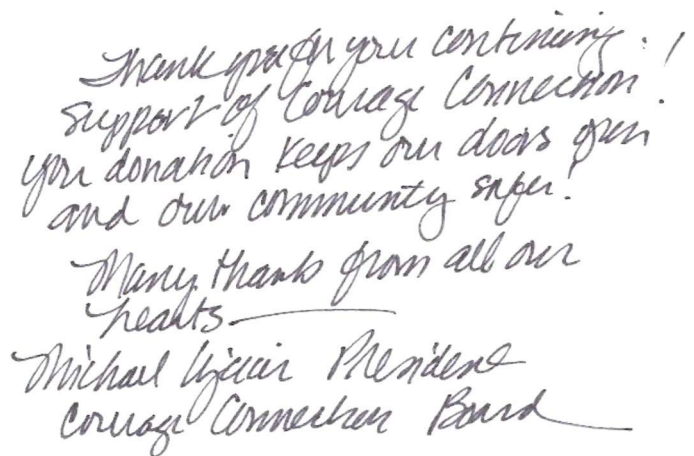 Thank you for your continuing
support of Courage Connection!
your donation keeps our doors open
and our community safer!
Many thanks from all our
hearts
Michael President
Courage Connection Board